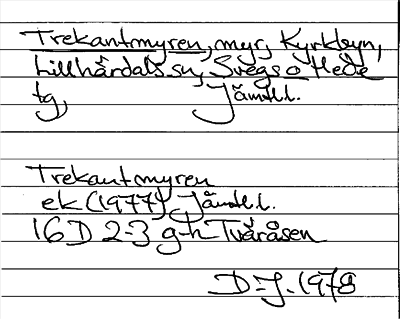 Trekantmyren, myr, Kyrkbyn,
Lillhärdals sn, Svegs o Hede
tg, Jämtl.l.
Trekantmyren
ek (1977) Jämtl.l.
16D 2-3 g-h Tvåråsen
D-J. 1978